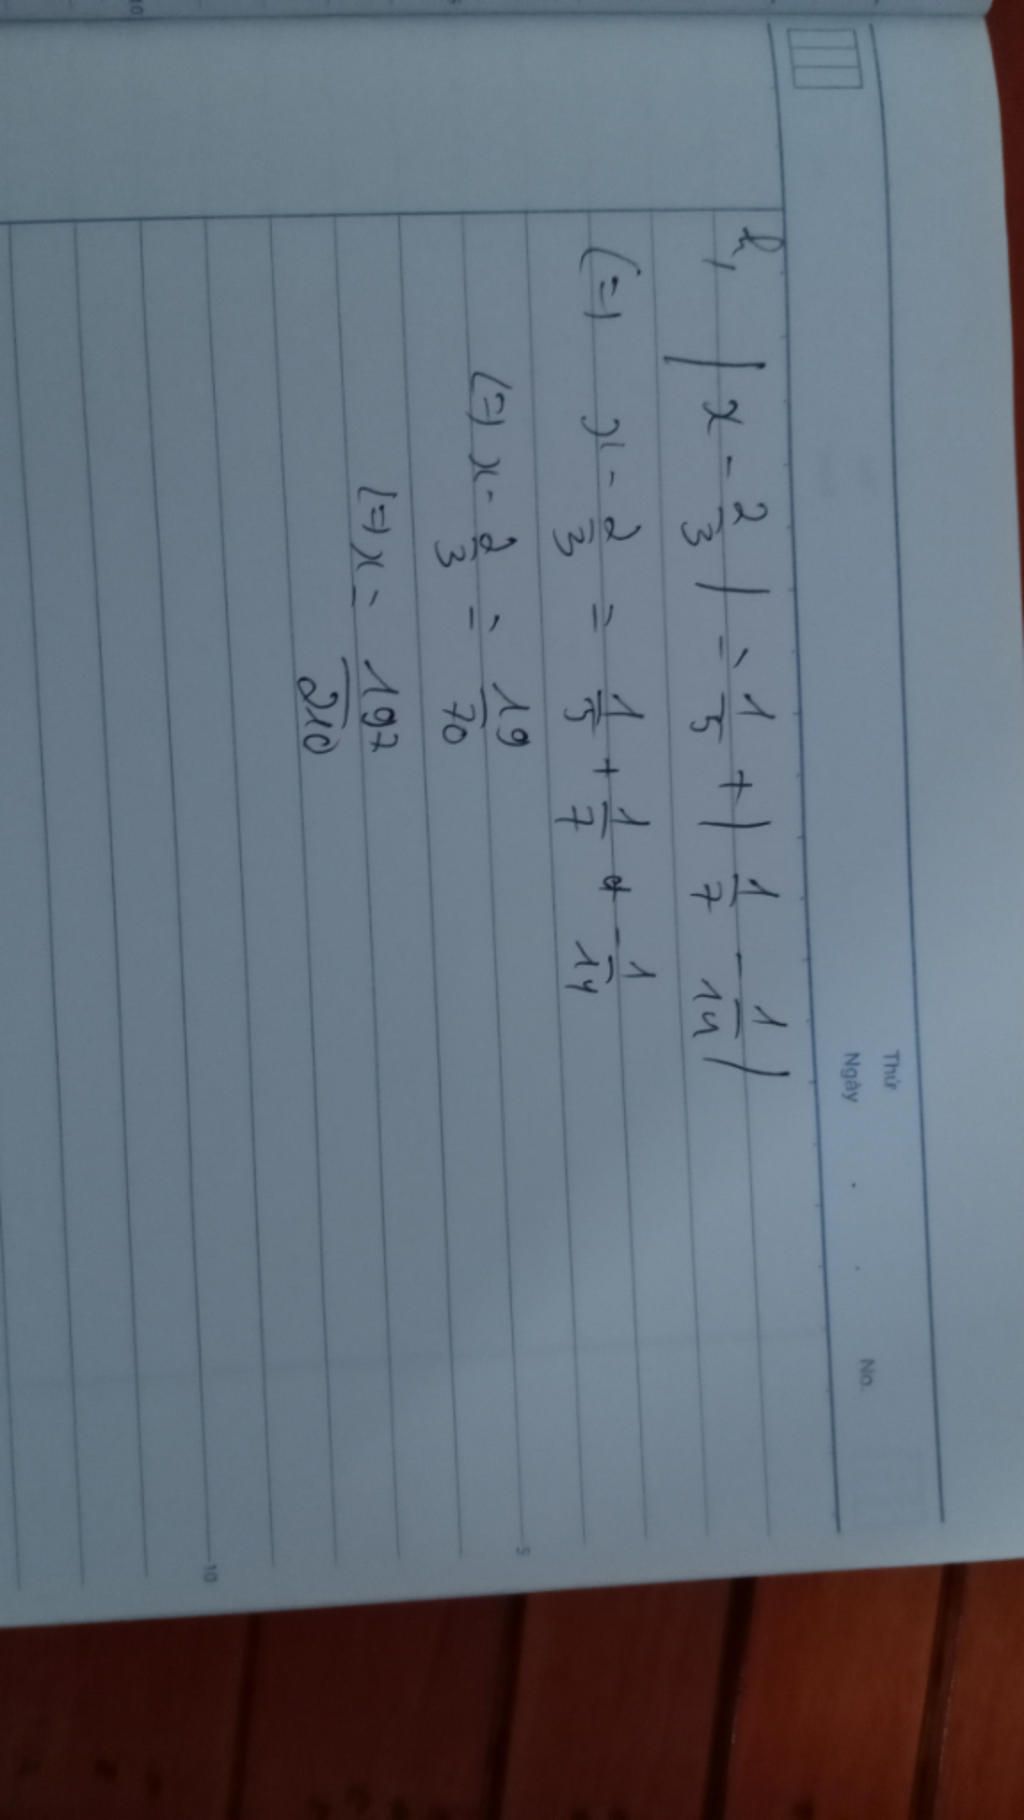 Thứ
Ngày . . No.
b, | x - 2/3 | = 1/5 + | 1/7 - 1/14 |
(=) x - 2/3 = 1/5 + 1/7 + -1/14
(=) x - 2/3 = 19/70
(=) x = 197/210
5
10